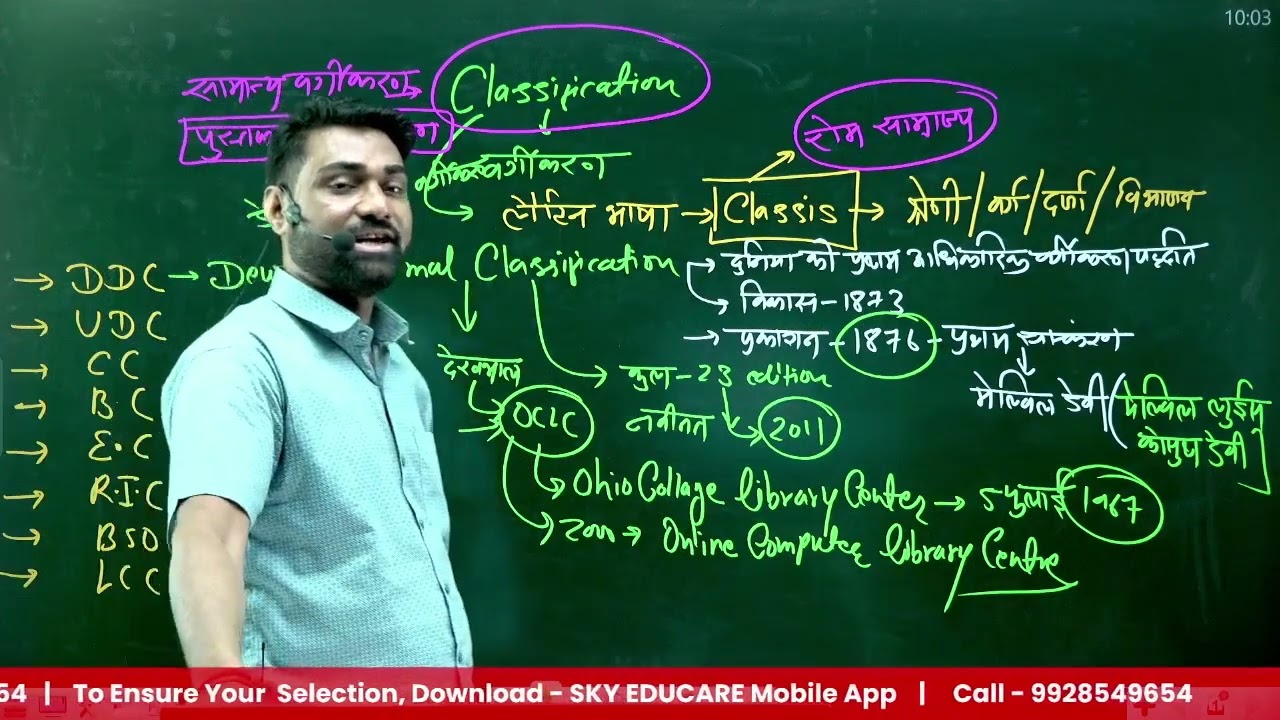 10:03
सामान्य वर्गीकरण
Classification
पुस्तक
रोम साम्राज्य
वर्गीकरण
लैटिन भाषा → Classis → श्रेणी/वर्ग/दर्जा/विभाजन
→ DDC → Dew mal Classification
→ दुनिया की प्रथम आधिकारिक वर्गीकरण पद्धति
→ विकास - 1873
→ UDC
→ प्रकाशन - 1876 - प्रथम संस्करण
→ CC
देखभाल
→ कुल - 23 edition
मेल्विल डेवी (मेल्विल लुईस
कोसुथ डेवी)
→ BC
→ OCLC
नवीनतम → 2011
→ E.C
→ R.I.C
→ Ohio Collage library Center → 5 जुलाई 1967
→ BSO
→ 2000 → Online Computer library Centre
→ LCC
54 | To Ensure Your Selection, Download - SKY EDUCARE Mobile App | Call - 9928549654